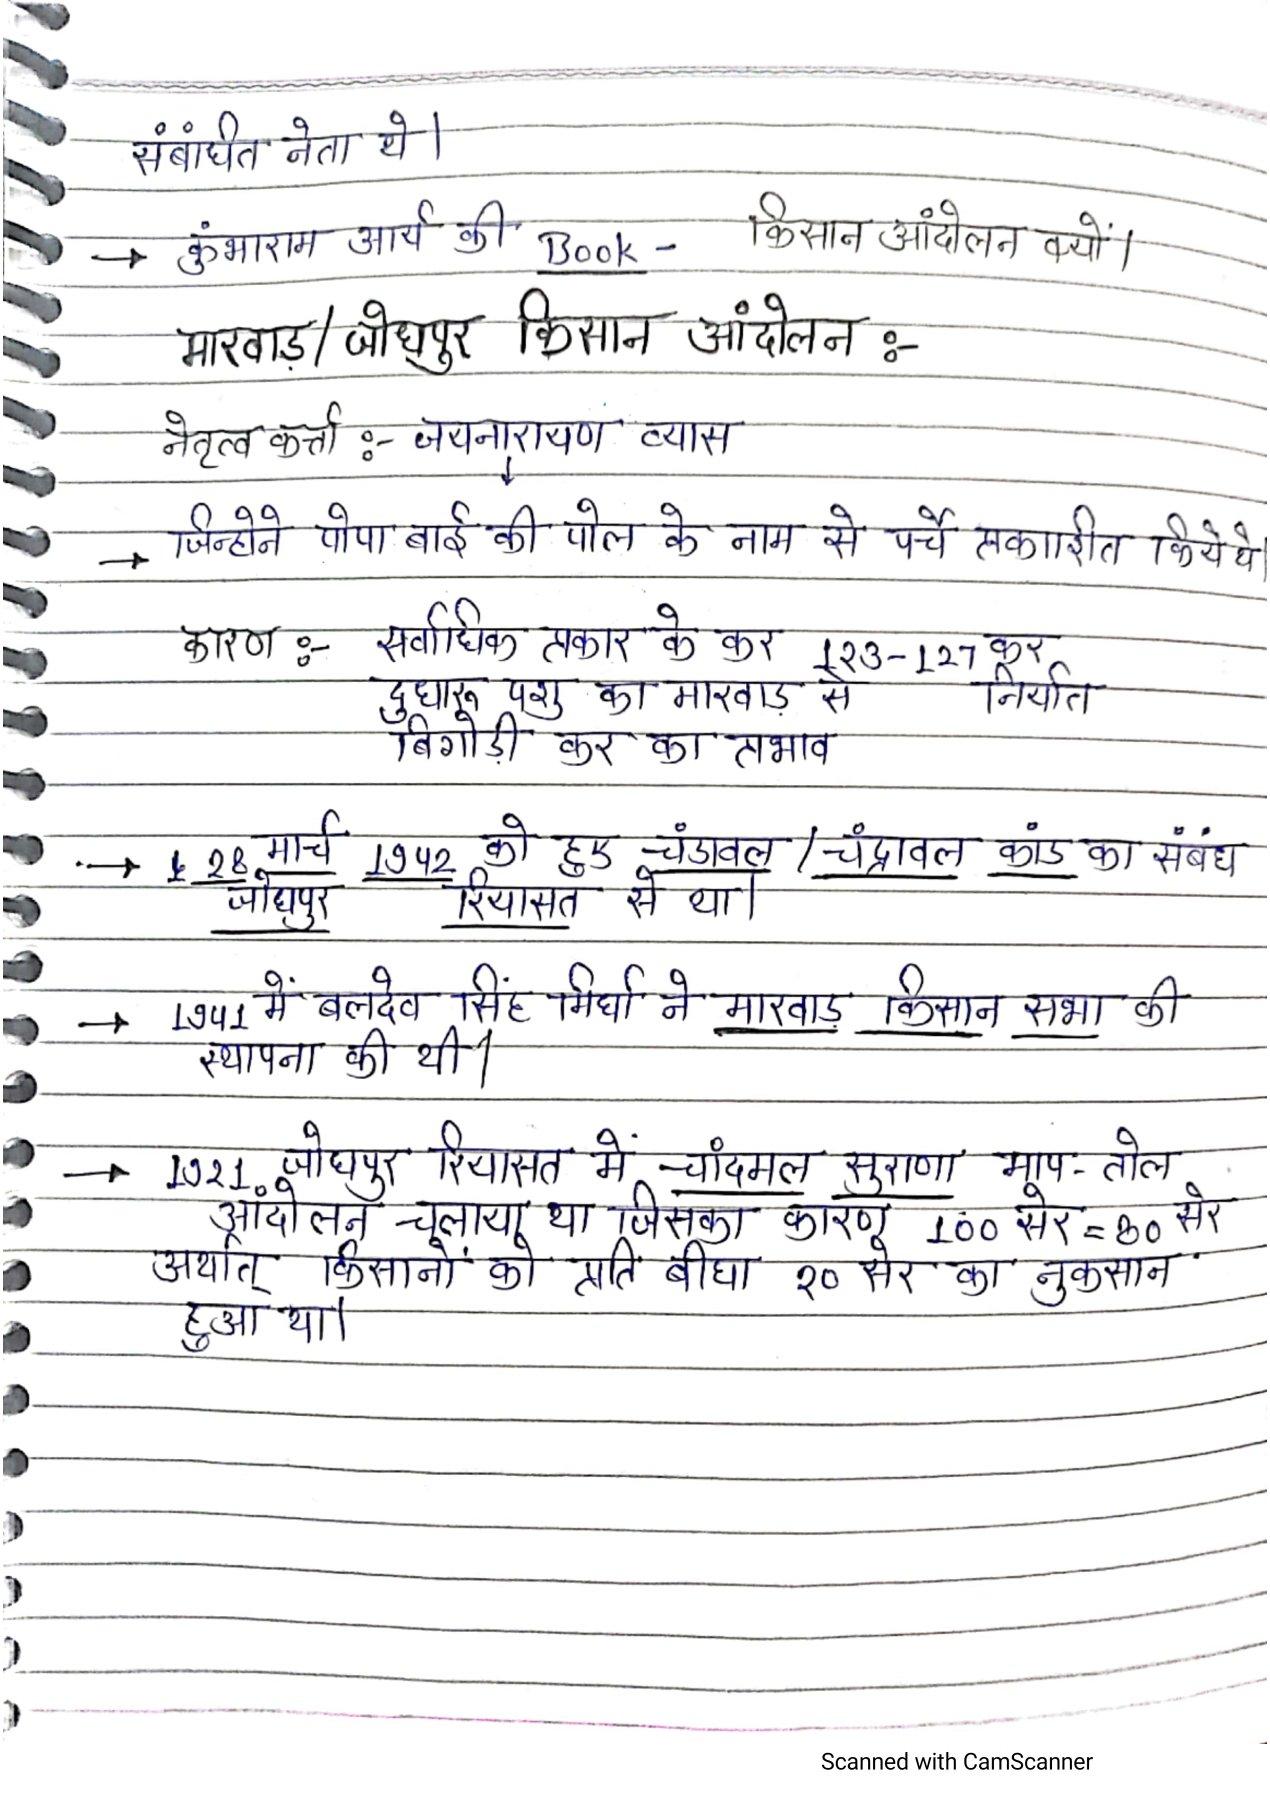 संबंधित नेता थे।
→ कुंभाराम आर्य की Book - किसान आंदोलन क्यों।
मारवाड़/जोधपुर किसान आंदोलन :-
नेतृत्व कर्त्ता :- जयनारायण व्यास
↓
→ जिन्होने पोपा बाई की पोल के नाम से पर्चे प्रकाशीत किये थे।
कारण :- सर्वाधिक प्रकार के कर 123-127 कर
दुधारू पशु का मारवाड़ से निर्यात
बिगोड़ी कर का प्रभाव
→ 28 मार्च 1942 को हुए चंडावल / चंद्रावल कांड का संबंध
जोधपुर रियासत से था।
→ 1941 में बलदेव सिंह मिर्धा ने मारवाड़ किसान सभा की
स्थापना की थी।
→ 1921 जोधपुर रियासत में चांदमल सुराणा माप-तोल
आंदोलन चलाया था जिसका कारण 100 सेर = 80 सेर
अर्थात् किसानों को प्रति बीघा 20 सेर का नुकसान
हुआ था।
Scanned with CamScanner